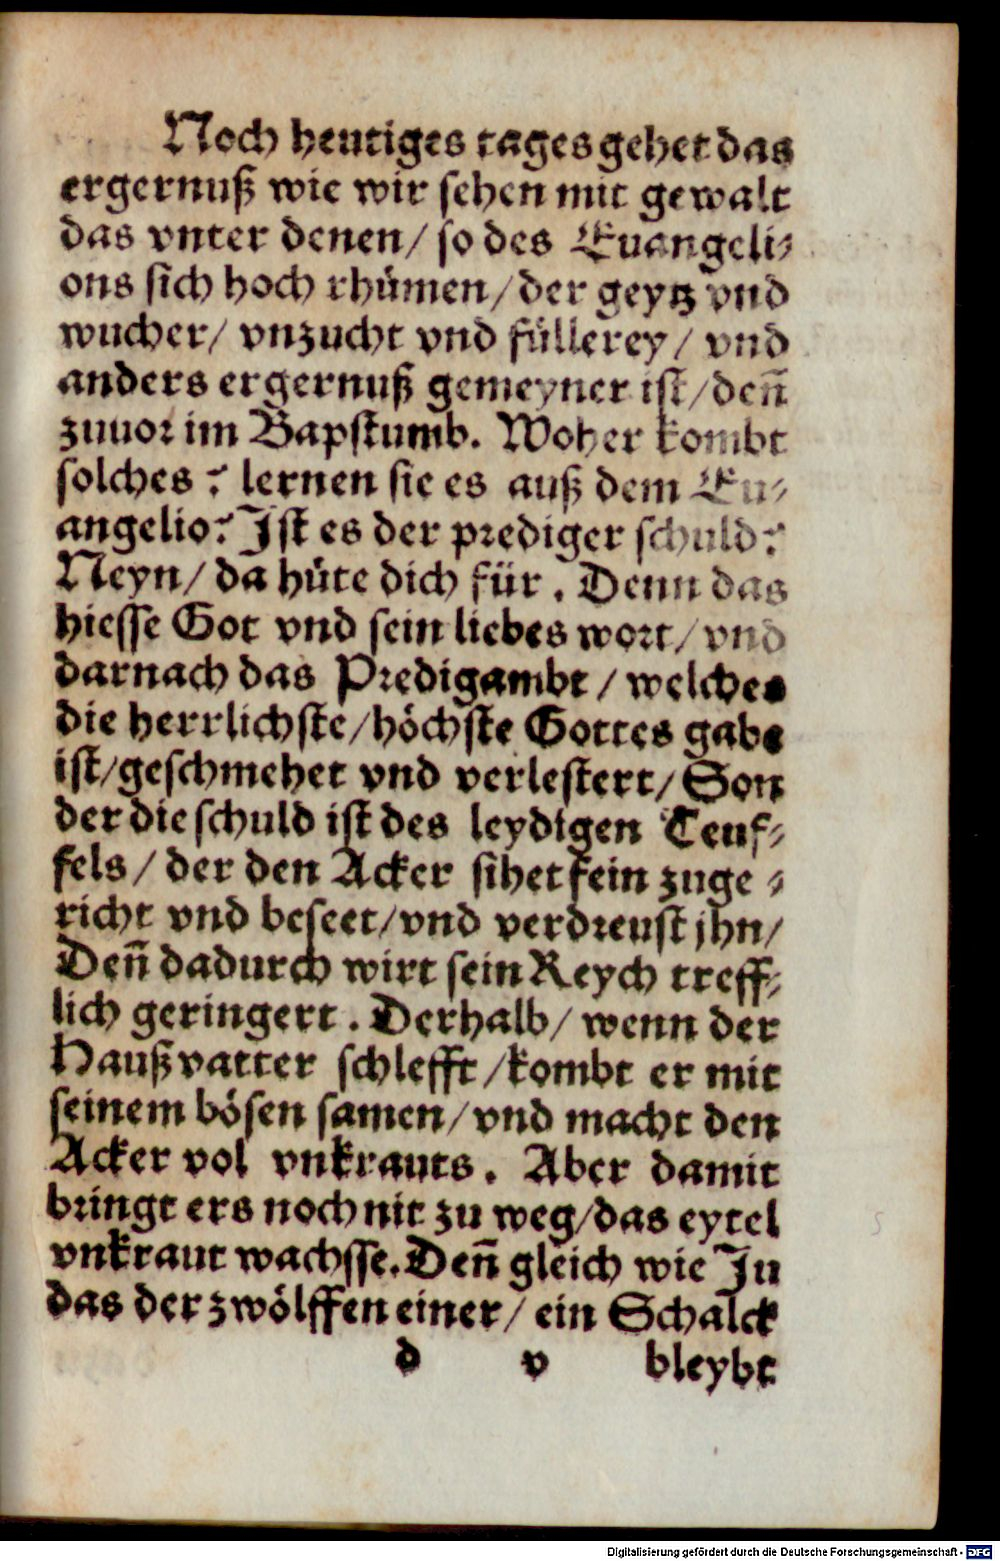 Noch heutiges tages gehet das
ergernuß wie wir sehen mit gewalt
das vnter denen/ so des Euangeli⸗
ons sich hoch rhümen/ der geytz vnd
wucher/ vnzucht vnd füllerey/ vnd
anders ergernuß gemeyner ist/ deñ
zuuor im Bapstumb. Woher kombt
solches? lernen sie es auß dem Eu⸗
angelio? Ist es der prediger schuld?
Neyn/ da hüte dich für. Denn das
hiesse Got vnd sein liebes wort/ vnd
darnach das Predigambt/ welches
die herrlichste/ höchste Gottes gabe
ist/ geschmehet vnd verlestert/ Son
der die schuld ist des leydigen Teuf⸗
fels/ der den Acker sihet fein zuge⸗
richt vnd beseet/ vnd verdreust jhn/
Deñ dadurch wirt sein Reych treff⸗
lich geringert. Derhalb/ wenn der
Haußvatter schlefft/ kombt er mit
seinem bösen samen/ vnd macht den
Acker vol vnkrauts. Aber damit
bringt ers noch nit zu weg/ das eytel
vnkraut wachsse. Deñ gleich wie Ju
das der zwölffen einer/ ein Schalck
d v bleybt
Digitalisierung gefördert durch die Deutsche Forschungsgemeinschaft - DFG